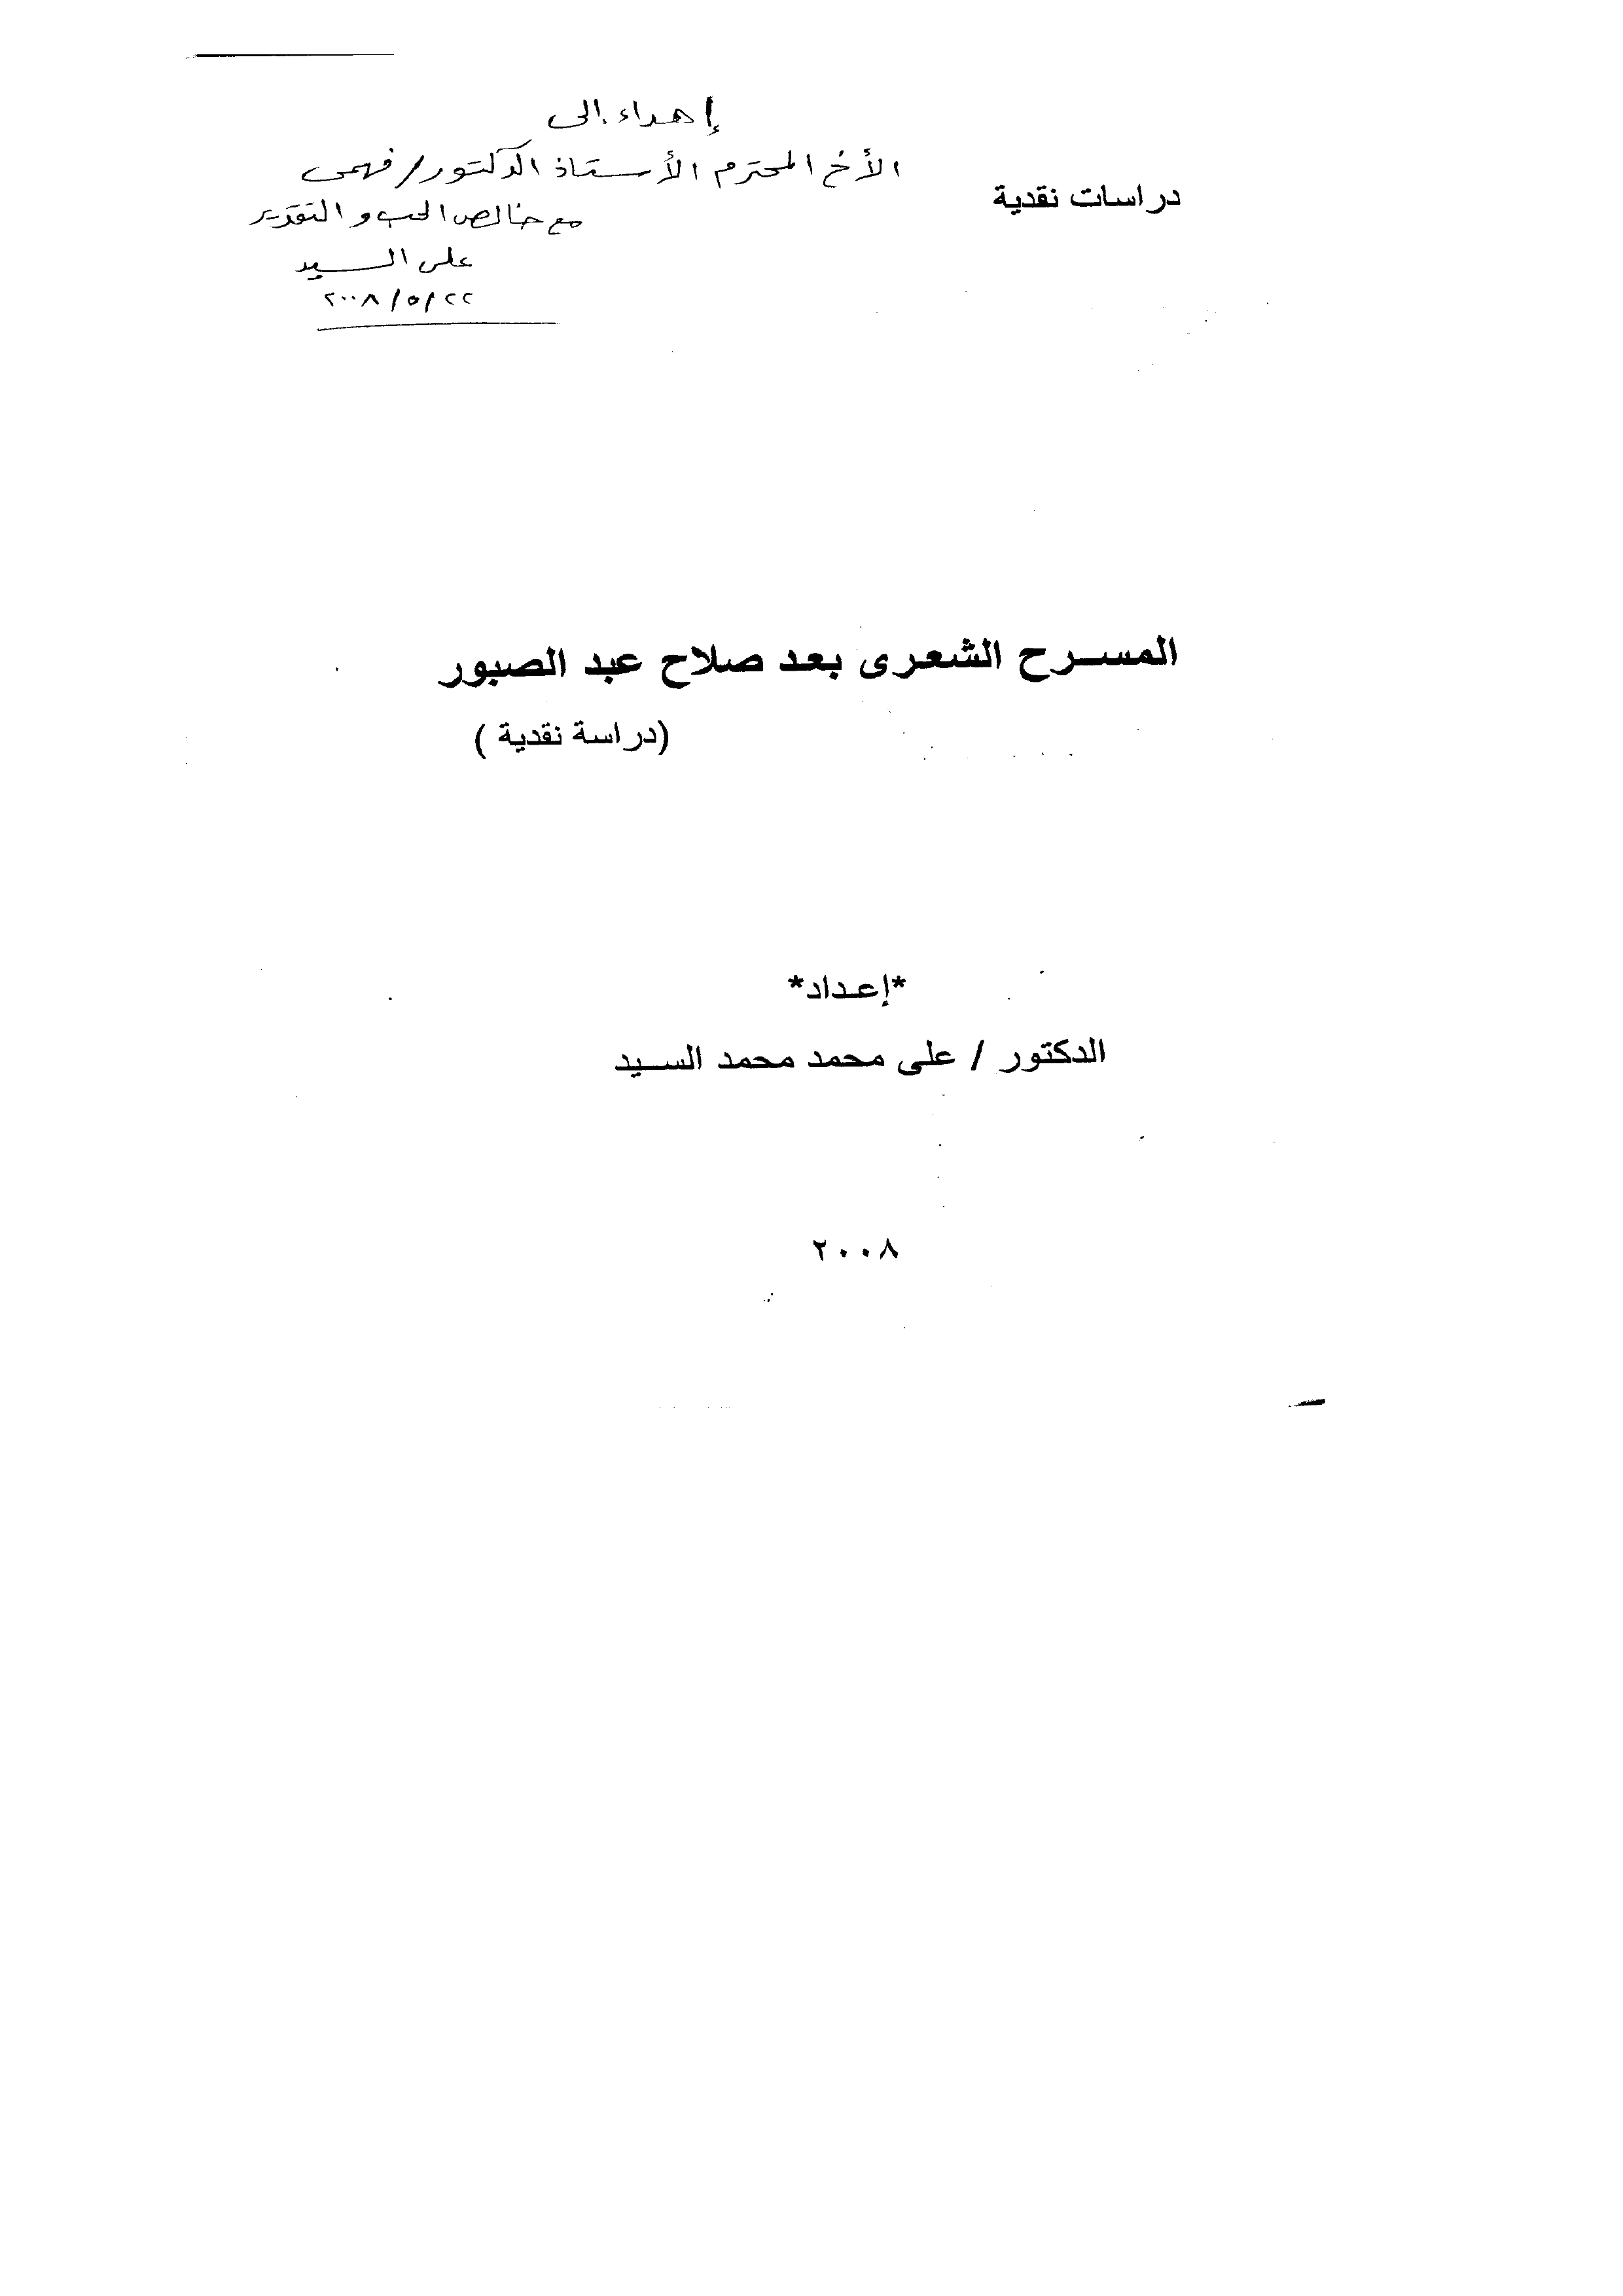 إهداء إلى
الأخ المحترم الأستاذ الدكتور/ فهمى
مع خالص الحب والتقدير
على السيد
٢٢/٥/٢٠٠٨
دراسات نقدية
المسرح الشعرى بعد صلاح عبد الصبور
(دراسة نقدية )
*إعداد*
الدكتور / على محمد محمد السيد
٢٠٠٨